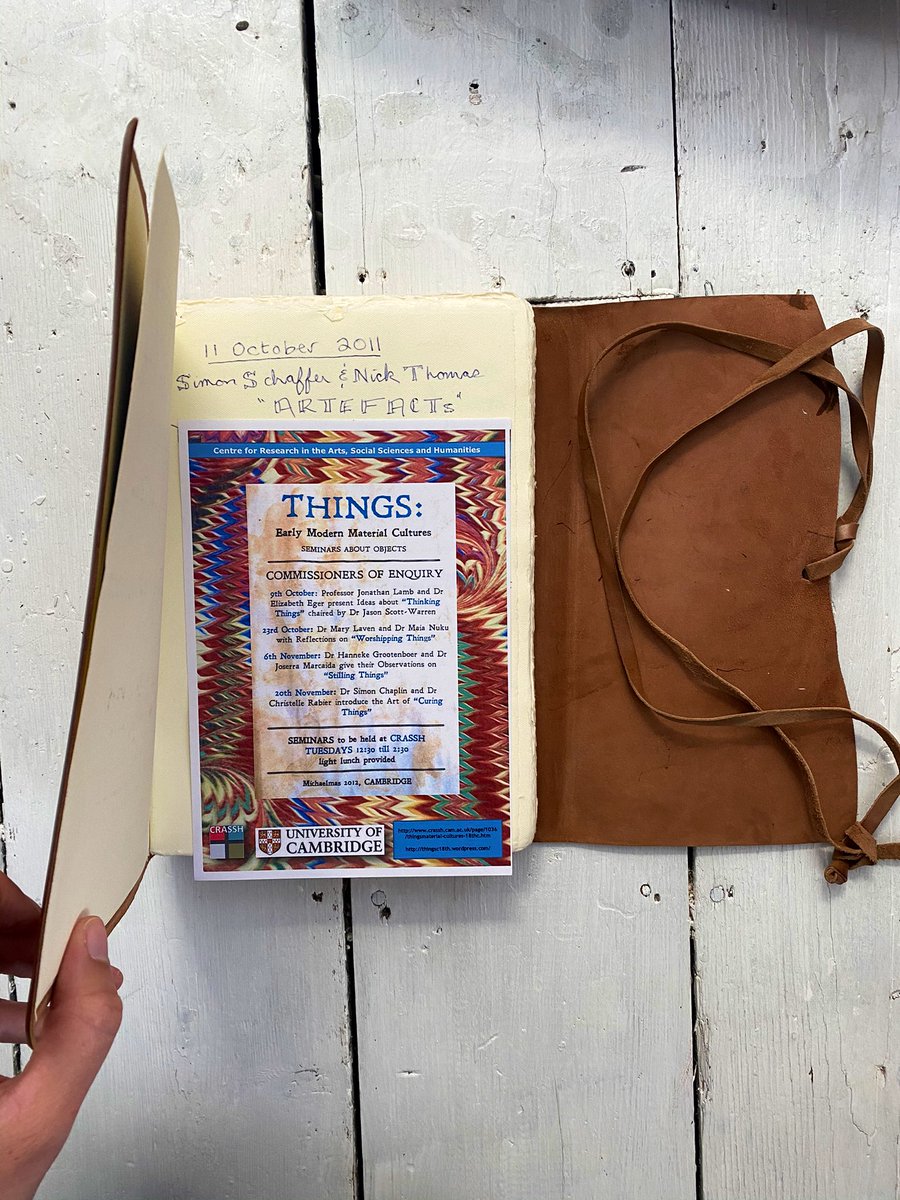 11 October 2011
Simon Schaffer & Nick Thomas
"ARTEFACTs"
Centre for Research in the Arts, Social Sciences and Humanities
THINGS:
Early Modern Material Cultures
SEMINARS ABOUT OBJECTS
COMMISSIONERS OF ENQUIRY
9th October: Professor Jonathan Lamb and Dr
Elizabeth Eger present Ideas about "Thinking
Things" chaired by Dr Jason Scott-Warren
23rd October: Dr Mary Laven and Dr Maia Nuku
with Reflections on "Worshipping Things"
6th November: Dr Hanneke Grootenboer and Dr
Joserra Marcaida give their Observations on
"Stilling Things"
20th November: Dr Simon Chaplin and Dr
Christelle Rabier introduce the Art of "Curing
Things"
SEMINARS to be held at CRASSH
TUESDAYS 12:30 till 2:30
light lunch provided
Michaelmas 2012, CAMBRIDGE
CRASSH
UNIVERSITY OF
CAMBRIDGE
http://www.crassh.cam.ac.uk/page/1036
/thingsmaterial-cultures-18thc.htm
http://thingsc18th.wordpress.com/